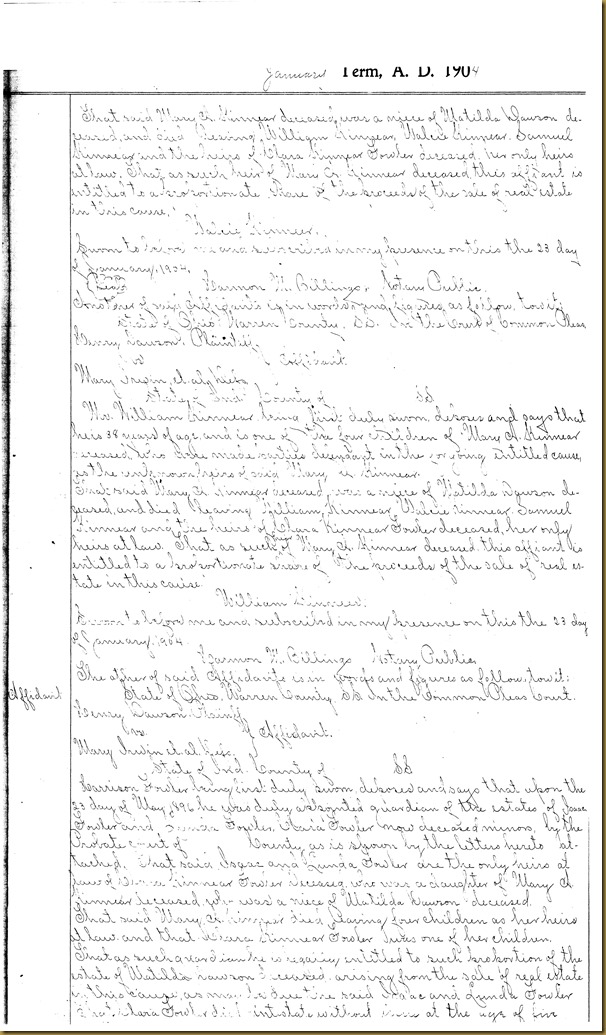 January Term, A. D. 1904
That said Mary A. Kinnear deceased, was a niece of Matilda Dawson de-
ceased, and died leaving William Kinnear, Walcie Kinnear, Samuel
Kinnear and the heirs of Clara Kinnear Fowler deceased, her only heirs
at law. That as such heir of Mary A. Kinnear deceased this affiant is
entitled to a proportionate share of the proceeds of the sale of real estate
in this cause.
Walcie Kinneer.
Sworn to before me and subscribed in my presence on this the 23 day
of January, 1904.
(Seal) Harmon M. Billings, Notary Public.
Another of said Affidavits is in words and figures as follow, towit:
State of Ohio Warren County, SS. In the Court of Common Pleas
Henry Dawson, Plaintiff,
vs Affidavit
Mary Irwin, et al, Defts
State of Ind. County of SS
Wm. William Kinnear being first duly sworn, deposes and says that
he is 38 years of age and is one of the four children of Mary A. Kinnear
deceased, who are made parties defendant in the foregoing entitled cause,
as the unknown heirs of said Mary A. Kinnear.
That said Mary A. Kinnear deceased, was a niece of Matilda Dawson de-
ceased, and died leaving William Kinnear, Walcie Kinnear, Samuel
Kinnear and the heirs of Clara Kinnear Fowler deceased, her only
heirs at law. That as such of Mary A. Kinnear deceased, this affiant is
entitled to a proportionate share of the proceeds of the sale of real es-
tate in this cause.
William Kinneer.
Sworn to before me and subscribed in my presence on this the 23 day
of January, 1904.
Harmon M. Billings Notary Public,
The other of said Affidavits is in words and figures as follow, towit:
Affidavit State of Ohio, Warren County SS In the Common Pleas Court.
Henry Dawson, Plaintiff
vs. Affidavit.
Mary Irwin et al. Defts.
State of Ind. County of SS
Harrison Fowler being first duly sworn, deposes and says that upon the
23 day of May 1896 he was duly appointed guardian of the estates of Isaac
Fowler and Fowler, Claria Fowler now deceased minors, by the
Probate Court of County, as is shown by the letters hereto at-
tached. That said Isaac and Lunda Fowler are the only heirs at
law of Clara Kinnear Fowler deceased, who was a daughter of Mary A.
Kinnear deceased, who was a niece of Matilda Dawson deceased.
That said Mary A. Kinnear died, leaving four children as her heirs
at law and that Clara Kinnear Fowler was one of her children.
That as such guardian he is entitled to such proportion of the
estate of Matilda Dawson deceased, arising from the sale of real estate
in this cause, as may be due the said Isaac and Lunda Fowler
that Clara Fowler died intestate without issue at the age of five